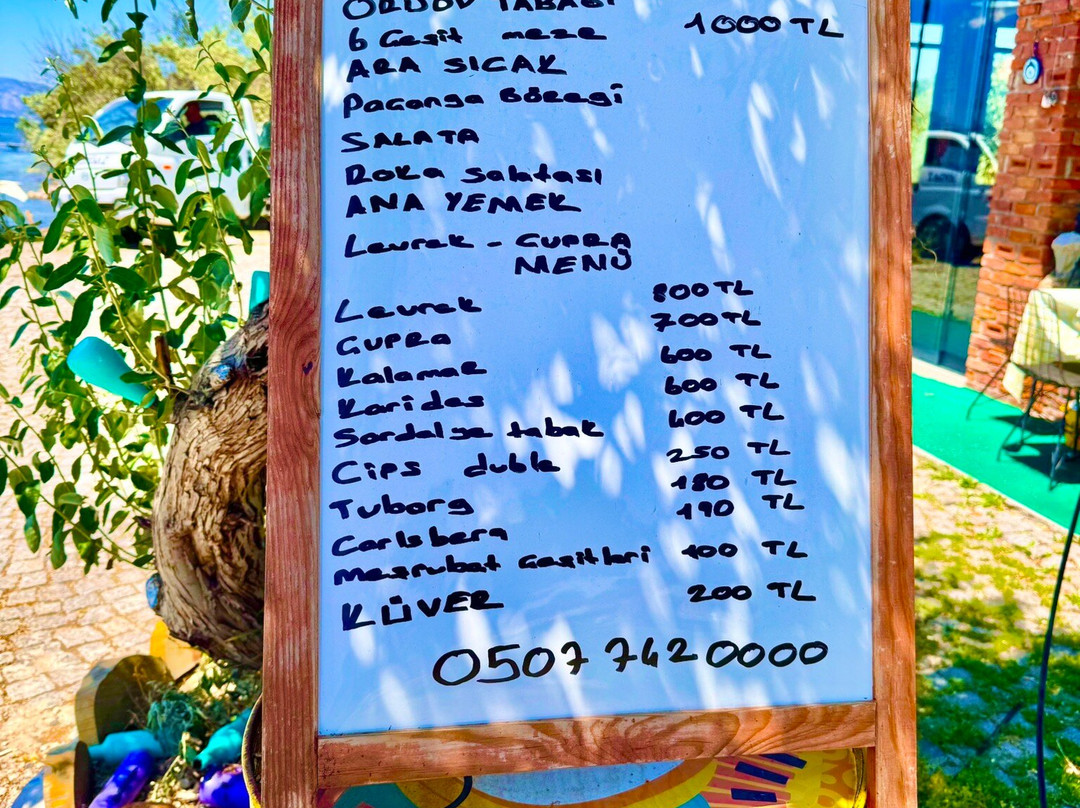 ORDÖV TABAĞI
6 Çeşit meze 1000 TL
ARA SICAK
Paçanga Böreği
SALATA
Roka Salatası
ANA YEMEK
Levrek - ÇUPRA
MENÜ
Levrek 800 TL
ÇUPRA 700 TL
Kalamar 600 TL
Karides 600 TL
Sardalye tabak 400 TL
Cips duble 250 TL
Tuborg 180 TL
Carlsberg 190 TL
Meşrubat Çeşitleri 100 TL
KÜVER 200 TL
0507 742 0000